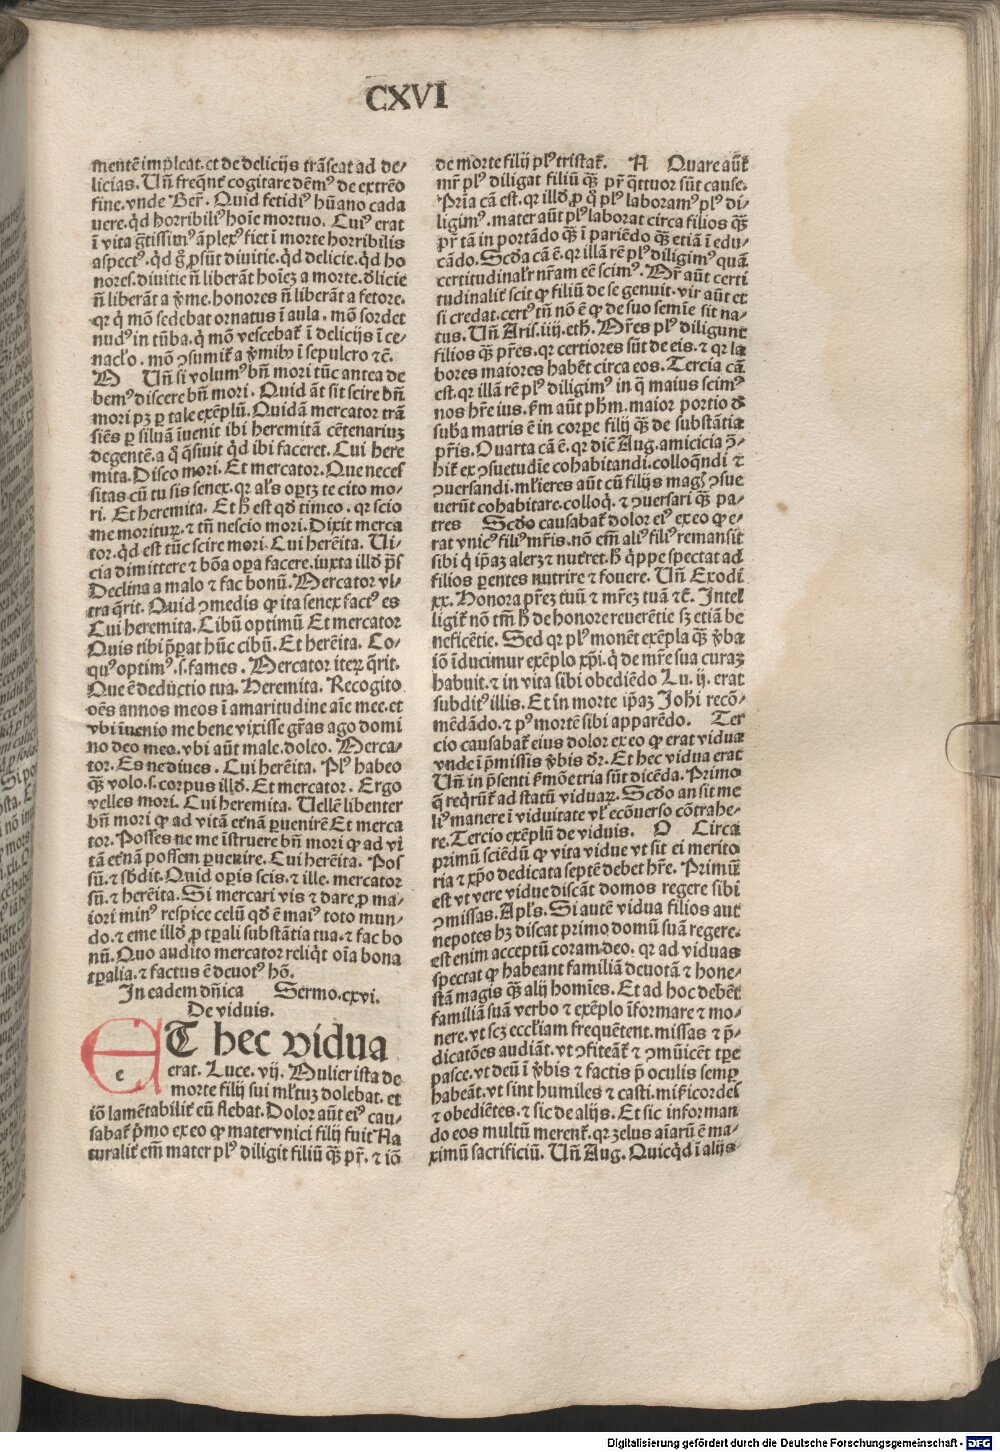 CXVI
mentē impleat. et de delicijs trāseat ad de⸗
licias. Uñ freq̄nt̄ cogitare dēmꝰ de extrēo
fine. vnde Ber̄. Quid fetidiꝰ hūano cada
uere. qd̄ horribiliꝰ hoīe mortuo. Cuiꝰ erat
ī vita ḡtissimꝰ āplexꝰ fiet ī morte horribilis
aspectꝰ. qd̄ ḡ ꝓsūt diuitie. qd̄ delicie. qd̄ ho
nores. diuitie n̄ liberāt hoīeꝫ a morte. d̄licie
n̄ liberāt a v̄me. honores n̄ liberāt a fetore.
qꝛ q̇ mō sedebat ornatus ī aula. mō sordet
nudꝰ in tūba. q̇ mō vescebat̄ ī delicijs ī ce⸗
naclo. mō ꝯsumit̄ a v̄mibꝰ ī sepulcro ⁊c̄.
M Uñ si volumꝰ bn̄ mori tūc antea de
bemꝰ discere bn̄ mori. Quid āt sit scire bn̄
mori pꝫ ꝑ tale exēplū. Quidā mercator trā
siēs ꝑ siluā īuenit ibi heremitā cētenariuꝫ
degentē. a q̇ q̄siuit qd̄ ibi faceret. Cui here
mita. Disco mori. Et mercator. Que necef
sitas cū tu sis senex. qꝛ al̄s oꝑtꝫ te cito mo⸗
ri. Et heremita. Et h̄ est qd̄ timeo. qꝛ scio
me moriturꝫ. ⁊ tn̄ nescio mori. Dixit merca
tor. qd̄ est tūc scire mori. Cui herēita. Ui⸗
cia dimittere ⁊ bōa oꝑa facere. iuxta illd̄ p̄s
Declina a malo ⁊ fac bonū. Mercator vl⸗
tra q̄rit. Quid ꝯmedis ꝙ ita senex factꝰ es
Cui heremita. Cibū optimū Et mercator
Quis tibi p̄ꝑat hūc cibū. Et herēita. Co⸗
quꝰ optimꝰ. s. fames. Mercator iterꝫ q̄rit.
Que ē deductio tua. Heremita. Recogito
oēs annos meos ī amaritudine aīe mee. et
vbi īuenio me bene vixisse gr̄as ago domi
no deo meo. vbi aūt male. doleo. Merca⸗
tor. Es ne diues. Cui herēita. Plꝰ habeo
qꝫ volo. s. corpus illd̄. Et mercator. Ergo
velles mori. Cui heremita. Uellē libenter
bn̄ mori ꝙ ad vitā et̄nā ꝑuenirē Et merca
tor. Posses ne me īstruere bn̄ mori ꝙ ad vi
tā et̄nā possem ꝑuenire. Cui herēita. Pos
sū. ⁊ sb̄dit. Quid oꝑis scis. ⁊ ille. mercator
sū. ⁊ herēita. Si mercari vis ⁊ dare ꝓ ma⸗
iori minꝰ respice celū qd̄ ē maiꝰ toto mun⸗
do. ⁊ eme illd̄ ꝓ tꝑali substātia tua. ⁊ fac bo
nū. Quo audito mercator reliq̇t oīa bona
tꝑalia. ⁊ factus ē deuotꝰ hō.
In eadem dn̄ica Sermo. cxvi.
De viduis.
ET hec vidua
erat. Luce. vij. Mulier ista de
morte filij sui ml̄tuꝫ dolebat. et
iō lamētabilit̄ eū flebat. Dolor aūt eiꝰ cau⸗
sabat̄ p̄mo ex eo ꝙ mater vnici filij fuit Na
turalit̄ em̄ mater plꝰ diligit filiū qꝫ pr̄. ⁊ iō
de morte filij plꝰ tristat̄. N Quare aūt̄
mr̄ plꝰ diligat filiū qꝫ pr̄ q̇ttuor sūt cause.
Pria cā est. qꝛ illd̄ ꝓ q̇ plꝰ laboramꝰ plꝰ di⸗
ligimꝰ. mater aūt plꝰ laborat circa filios qꝫ
pr̄ tā in portādo qꝫ ī pariēdo qꝫ etiā ī edu⸗
cādo. Scd̄a cā ē. qꝛ illā rē plꝰ diligimꝰ quā
certitudinalr̄ nr̄am eē scimꝰ. Mr̄ aūt certi
tudinalit̄ scit ꝙ filiū de se genuit. vir aūt et
si credat. certꝰ tn̄ nō ē ꝙ de suo semīe sit na⸗
tus. Uñ Aris. iiij. eth̄. Mr̄es plꝰ diligunt
filios qꝫ pr̄es. qꝛ certiores sūt de eis. ⁊ qꝛ la
bores maiores habēt circa eos. Tercia cā
est. qꝛ illā rē plꝰ diligimꝰ in q̇ maius scimꝰ
nos hr̄e ius. sm̄ aūt ph̄m. maior portio d̄
suba matris ē in corꝑe filij qꝫ de substātia
pr̄is. Quarta cā ē. qꝛ dīc̄ Aug. amicicia ꝯ⸗
hit̄ ex ꝯsuetudīe cohabitandi. colloq̄ndi ⁊
ꝯuersandi. ml̄ieres aūt cū filijs magꝭ ꝯsue
uerūt cohabitare. colloq̇. ⁊ ꝯuersari qꝫ pa⸗
tres Scd̄o causabat̄ dolor eiꝰ ex eo ꝙ e⸗
rat vnicꝰ filiꝰ mr̄is. nō em̄ aliꝰ filiꝰ remansit
sibi q̇ ip̄aꝫ aleꝛꝫ ⁊ nut̄ret. h̄ q̇ppe spectat ad
filios ꝑentes nutrire ⁊ fouere. Uñ Exodi
xx. Honora pr̄eꝫ tuū ⁊ mr̄eꝫ tuā ⁊c̄. Intel
ligit̄ nō tm̄ h̄ de honore reuerētie sꝫ etiā be
neficētie. Sed qꝛ plꝰ monēt exēpla qꝫ v̄ba
iō īducimur exēplo xp̄i. q̇ de mr̄e sua curaꝫ
habuit. ⁊ in vita sibi obediēdo Lu. ij. erat
subditꝰ illis. Et in morte ip̄aꝫ Joh̄i recō⸗
mēdādo. ⁊ pꝰ mortē sibi apparēdo. Ter
cio causabat̄ eius dolor ex eo ꝙ erat vidua
vnde ī p̄missis v̄bis dr̄. Et hec vidua erat
Uñ in p̄senti s̄mōe tria sūt dicēda. Primo
q̄ req̇rūt̄ ad statū viduaꝝ. Scd̄o an sit me
liꝰ manere ī viduitate vl̄ ecōuerso cōtrahe⸗
re. Tercio exēplū de viduis. O Circa
primū sciēdū ꝙ vita vidue vt sit ei merito
ria ⁊ xp̄o dedicata septē debet hr̄e. Primū
est vt vere vidue discāt domos regere sibi
ꝯmissas. Apl̄s. Si autē vidua filios aut
nepotes hꝫ discat primo domū suā regere.
est enim acceptū coram deo. qꝛ ad viduas
spectat ꝙ habeant familiā deuotā ⁊ hone⸗
stā magis qꝫ alij homīes. Et ad hoc debēt
familiā suā verbo ⁊ exēplo īformare ⁊ mo⸗
nere. vt scꝫ eccl̄iam frequētent. missas ⁊ p̄⸗
dicatōes audiāt. vt ꝯfiteāt̄ ⁊ ꝯmūicēt tꝑe
pasce. vt deū ī v̄bis ⁊ factis p̄ oculis semꝑ
habeāt. vt sint humiles ⁊ casti. mi̅cordes
⁊ obediētes. ⁊ sic de alijs. Et sic informan
do eos multū merent̄. qꝛ zelus aīarū ē ma⸗
ximū sacrificiū. Uñ Aug. Quicq̇d ī alijs⸗
Digitalisierung gefördert durch die Deutsche Forschungsgemeinschaft - DFG